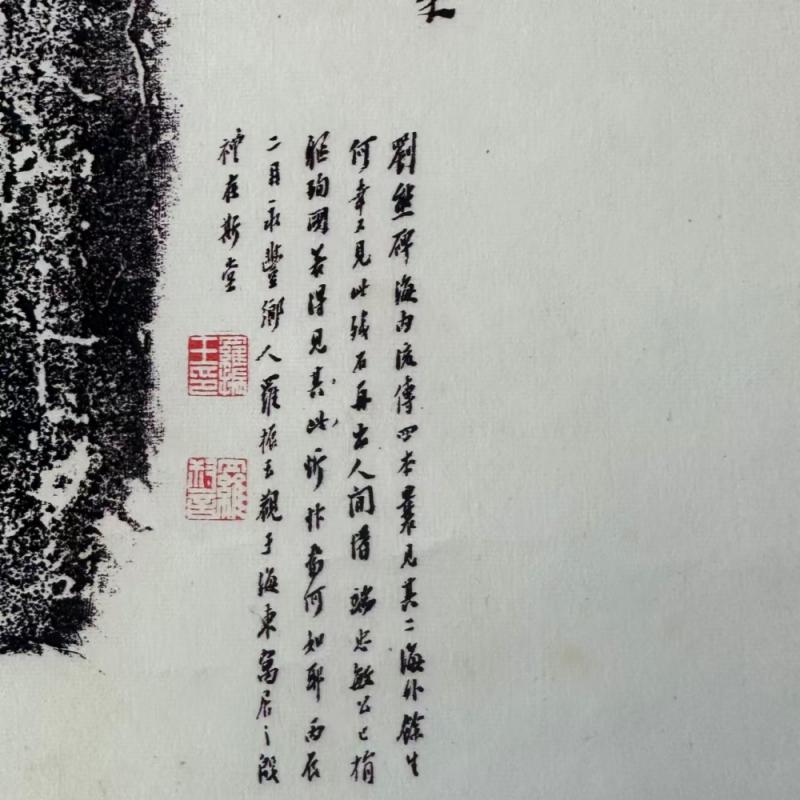 劉熊碑海内流傳四本曩見其二海外餘生
何幸又見此殘石再出人間惜端忠敏公已捐
軀殉國若得見其此忻抃當何如耶丙辰
二月永豐鄉人羅振玉觀于海東寓居之殷
禮在斯堂
羅振玉印